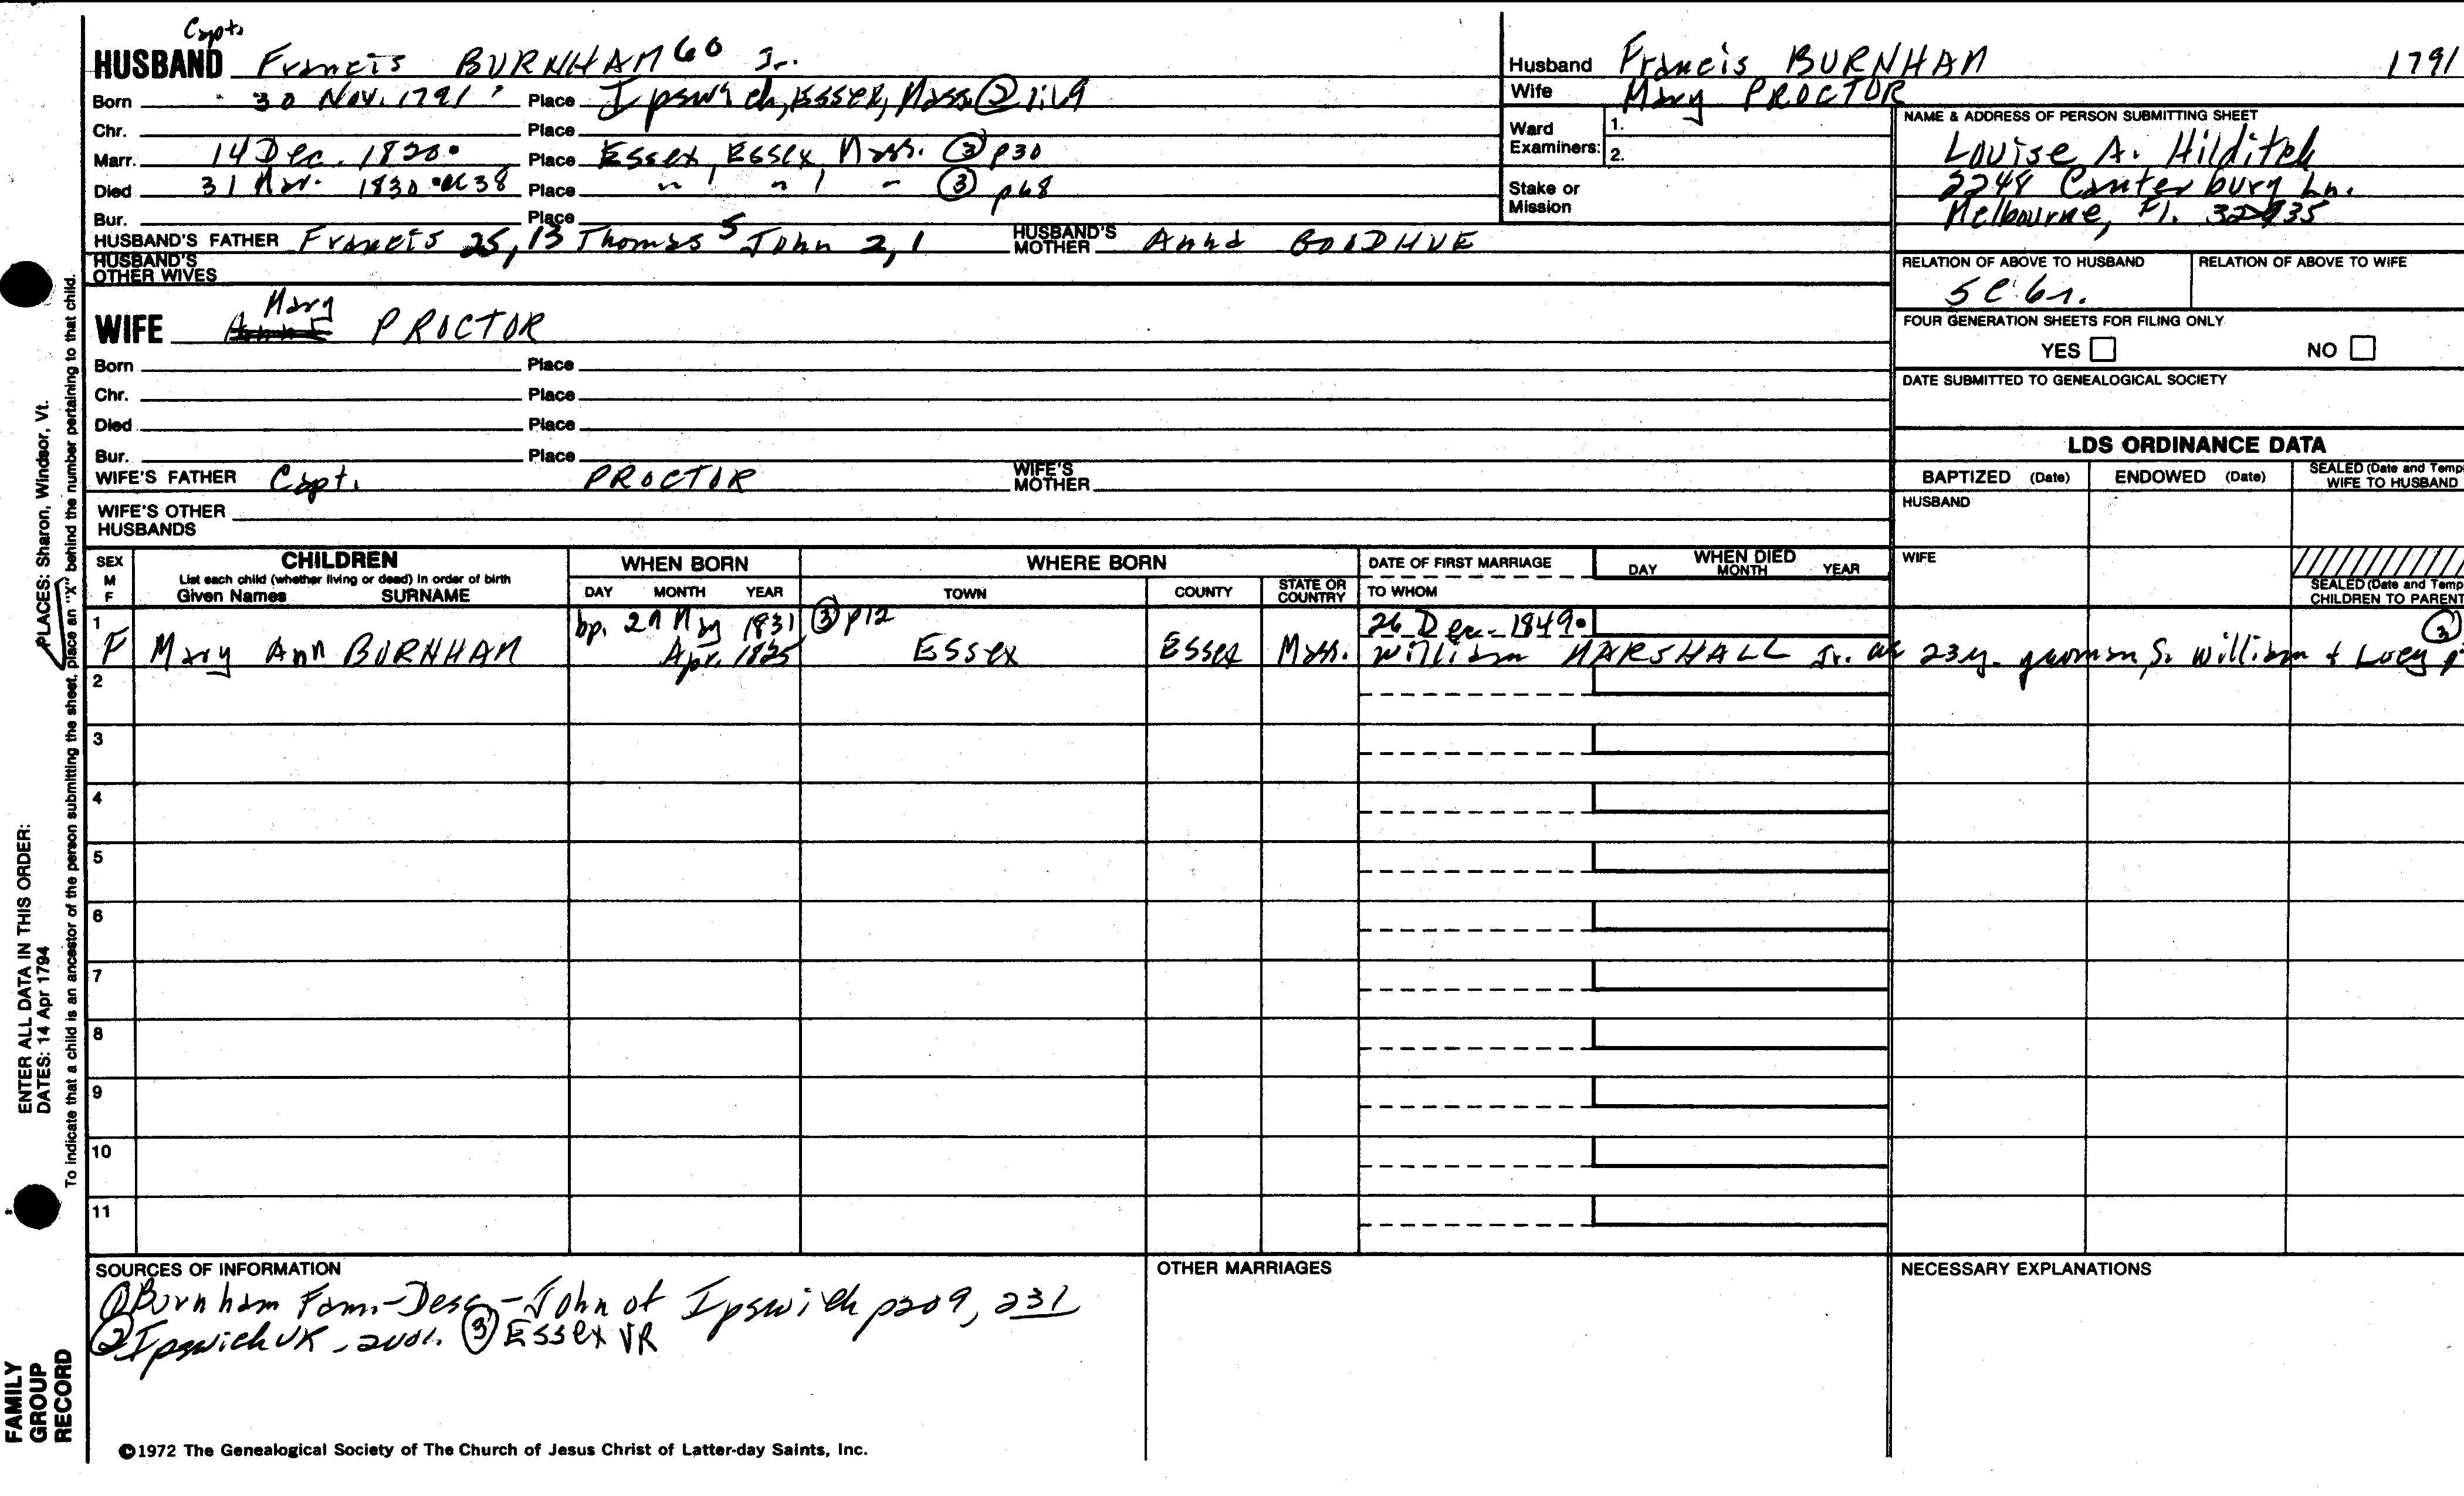 Capt.
HUSBAND Francis BURNHAM 60 Jr.
Born 30 Nov. 1791 Place Ipswich, Essex, Mass. ② 1:69
Chr. Place
Marr. 14 Dec. 1820. Place Essex, Essex Mass. ③ p30
Died 31 Mar. 1830 ae 38 Place " , " , " ③ p68
Bur. Place
HUSBAND'S FATHER Francis 25, 13 Thomas 5 John 2, 1 HUSBAND'S MOTHER Anna GOODHUE
HUSBAND'S OTHER WIVES
Mary
WIFE PROCTOR
Born Place
Chr. Place
Died Place
Bur. Place
WIFE'S FATHER Capt. PROCTOR WIFE'S MOTHER
WIFE'S OTHER HUSBANDS
Husband Francis BURNHAM 1791
Wife Mary PROCTOR
Ward Examiners: 1.
2.
Stake or Mission
NAME & ADDRESS OF PERSON SUBMITTING SHEET
Louise A. Hilditch
2248 Canterbury Ln.
Melbourne, Fl. 32935
RELATION OF ABOVE TO HUSBAND RELATION OF ABOVE TO WIFE
5C 6r.
FOUR GENERATION SHEETS FOR FILING ONLY
YES NO
DATE SUBMITTED TO GENEALOGICAL SOCIETY
LDS ORDINANCE DATA
BAPTIZED (Date) ENDOWED (Date) SEALED (Date and Temp
WIFE TO HUSBAND
HUSBAND
WIFE
SEALED (Date and Temp
CHILDREN TO PARENT
SEX M F CHILDREN WHEN BORN WHERE BORN DATE OF FIRST MARRIAGE WHEN DIED
List each child (whether living or dead) in order of birth
Given Names SURNAME DAY MONTH YEAR TOWN COUNTY STATE OR COUNTRY TO WHOM DAY MONTH YEAR
1 bp. 29 May 1831 ③ p12 26 Dec. 1849. ③
F Mary Ann BURNHAM Apr. 1825 Essex Essex Mass. William MARSHALL Jr. ae 23y. yeoman, S. William + Lucy
2
3
4
5
6
7
8
9
10
11
SOURCES OF INFORMATION
① Burnham Fam.-Desc.-John of Ipswich p209, 231
② Ipswich VR ③ Essex VR
OTHER MARRIAGES
NECESSARY EXPLANATIONS
©1972 The Genealogical Society of The Church of Jesus Christ of Latter-day Saints, Inc.
FAMILY GROUP RECORD
ENTER ALL DATA IN THIS ORDER:
DATES: 14 Apr 1794
PLACES: Sharon, Windsor, Vt.
To indicate that a child is an ancestor of the person submitting the sheet, place an "X" behind the number pertaining to that child.